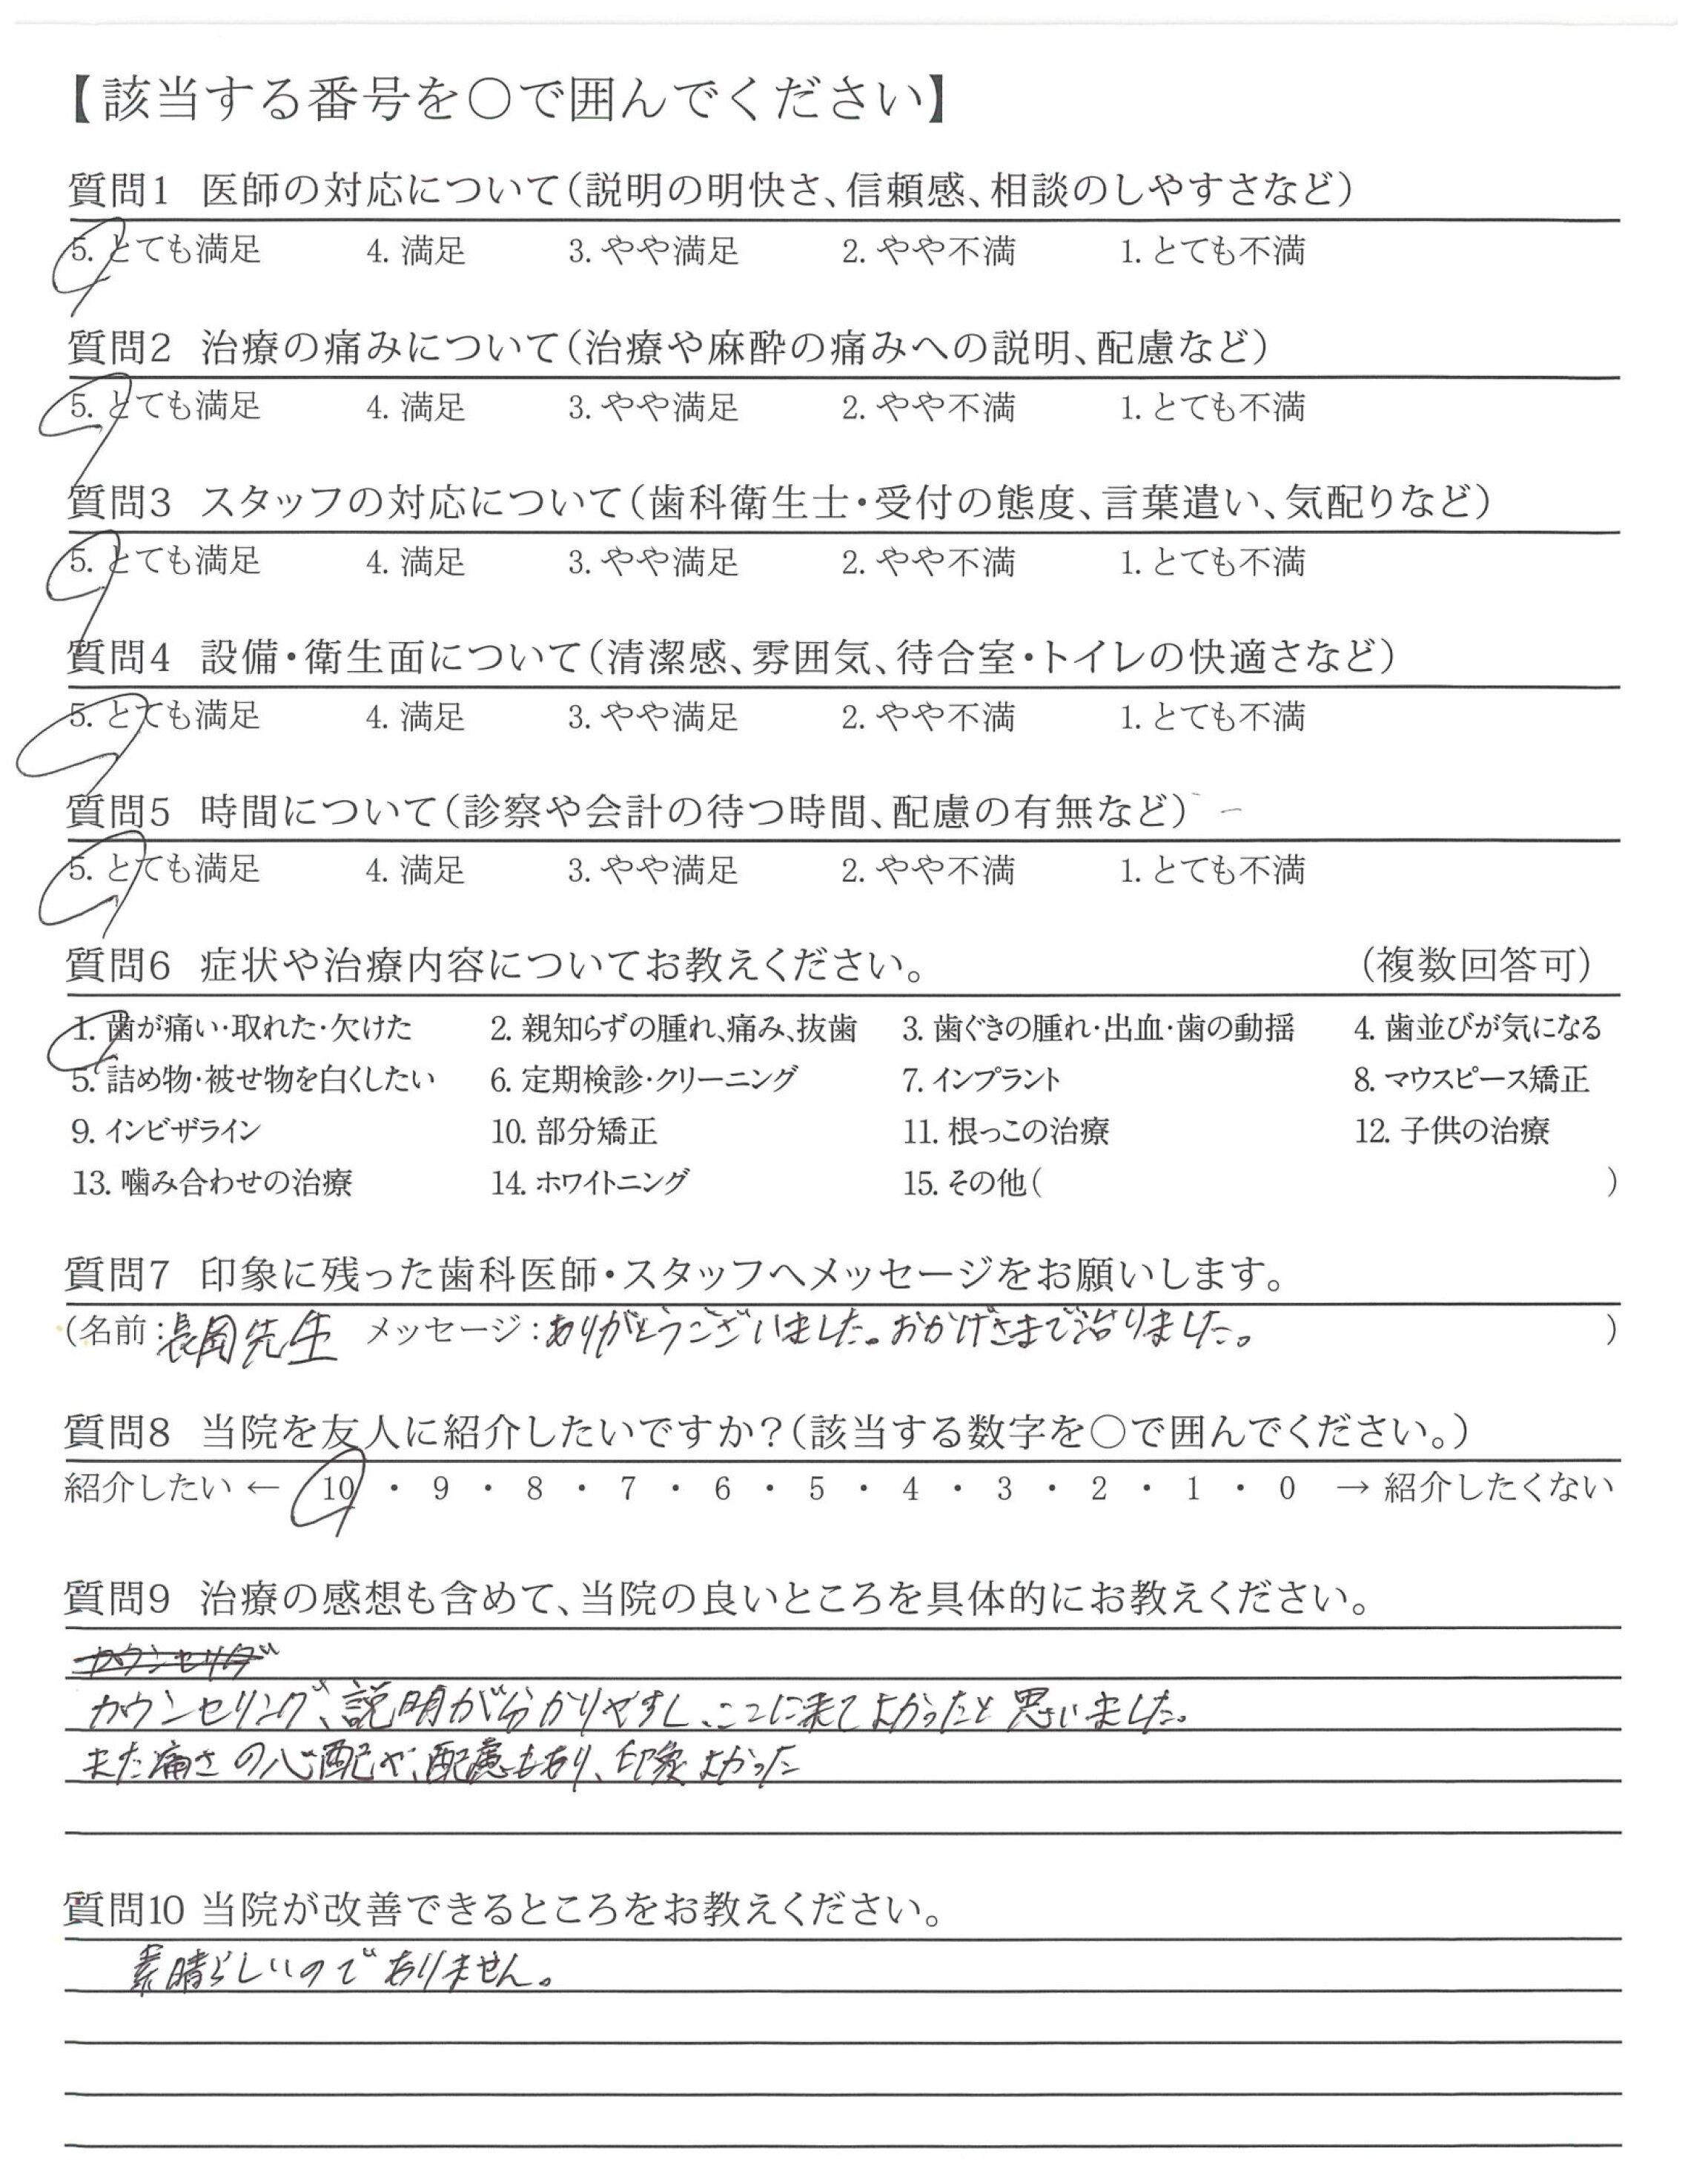 【該当する番号を○で囲んでください】
質問1 医師の対応について(説明の明快さ、信頼感、相談のしやすさなど)
5. とても満足 4. 満足 3. やや満足 2. やや不満 1. とても不満
質問2 治療の痛みについて(治療や麻酔の痛みへの説明、配慮など)
5. とても満足 4. 満足 3. やや満足 2. やや不満 1. とても不満
質問3 スタッフの対応について(歯科衛生士・受付の態度、言葉遣い、気配りなど)
5. とても満足 4. 満足 3. やや満足 2. やや不満 1. とても不満
質問4 設備・衛生面について(清潔感、雰囲気、待合室・トイレの快適さなど)
5. とても満足 4. 満足 3. やや満足 2. やや不満 1. とても不満
質問5 時間について(診察や会計の待つ時間、配慮の有無など)
5. とても満足 4. 満足 3. やや満足 2. やや不満 1. とても不満
質問6 症状や治療内容についてお教えください。 (複数回答可)
1. 歯が痛い・取れた・欠けた 2. 親知らずの腫れ、痛み、抜歯 3. 歯ぐきの腫れ・出血・歯の動揺 4. 歯並びが気になる
5. 詰め物・被せ物を白くしたい 6. 定期検診・クリーニング 7. インプラント 8. マウスピース矯正
9. インビザライン 10. 部分矯正 11. 根っこの治療 12. 子供の治療
13. 噛み合わせの治療 14. ホワイトニング 15. その他( )
質問7 印象に残った歯科医師・スタッフへメッセージをお願いします。
(名前:長岡先生 メッセージ:ありがとうございました。おかげさまで治りました。 )
質問8 当院を友人に紹介したいですか?(該当する数字を○で囲んでください。)
紹介したい ← 10 ・ 9 ・ 8 ・ 7 ・ 6 ・ 5 ・ 4 ・ 3 ・ 2 ・ 1 ・ 0 → 紹介したくない
質問9 治療の感想も含めて、当院の良いところを具体的にお教えください。
カウンセリング
カウンセリング、説明が分かりやすし、ここに来てよかったと思いました。
また痛さの心配や、配慮もあり、印象よかった
質問10 当院が改善できるところをお教えください。
素晴らしいのでありません。